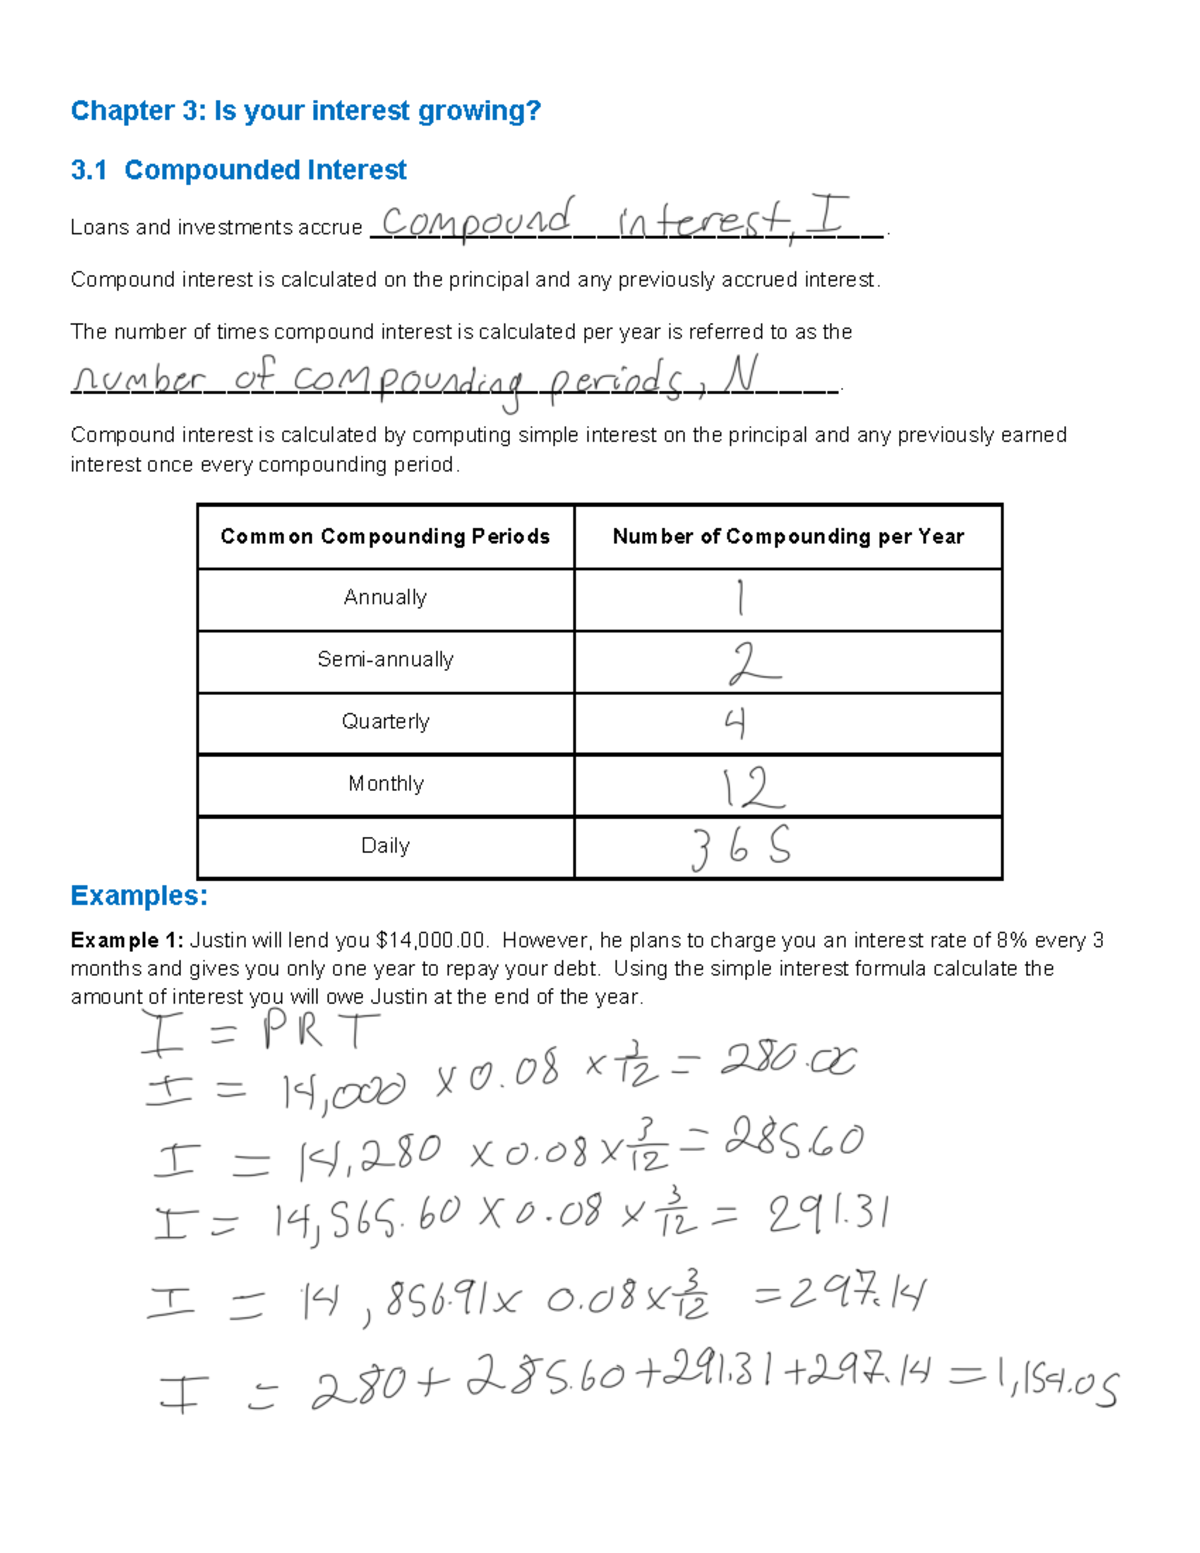 Chapter 3: Is your interest growing?
3.1 Compounded Interest
Loans and investments accrue compound interest, I.
Compound interest is calculated on the principal and any previously accrued interest.
The number of times compound interest is calculated per year is referred to as the
number of compounding periods, N.
Compound interest is calculated by computing simple interest on the principal and any previously earned
interest once every compounding period.
Common Compounding Periods Number of Compounding per Year
Annually 1
Semi-annually 2
Quarterly 4
Monthly 12
Daily 365
Examples:
Example 1: Justin will lend you $14,000.00. However, he plans to charge you an interest rate of 8% every 3
months and gives you only one year to repay your debt. Using the simple interest formula calculate the
amount of interest you will owe Justin at the end of the year.
I = PRT
I = 14,000 x 0.08 x 3/12 = 280.00
I = 14,280 x 0.08 x 3/12 = 285.60
I = 14,565.60 x 0.08 x 3/12 = 291.31
I = 14,856.91 x 0.08 x 3/12 = 297.14
I = 280 + 285.60 + 291.31 + 297.14 = 1,154.05